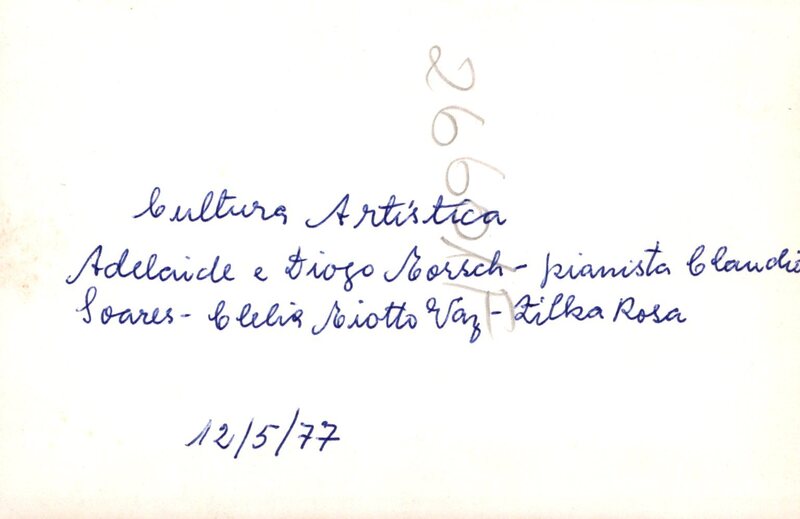 Cultura Artística
Adelaide e Diogo Morsch - pianista Claudio
Soares - Clelia Miotto Vaz - Zilka Rosa
12/5/77